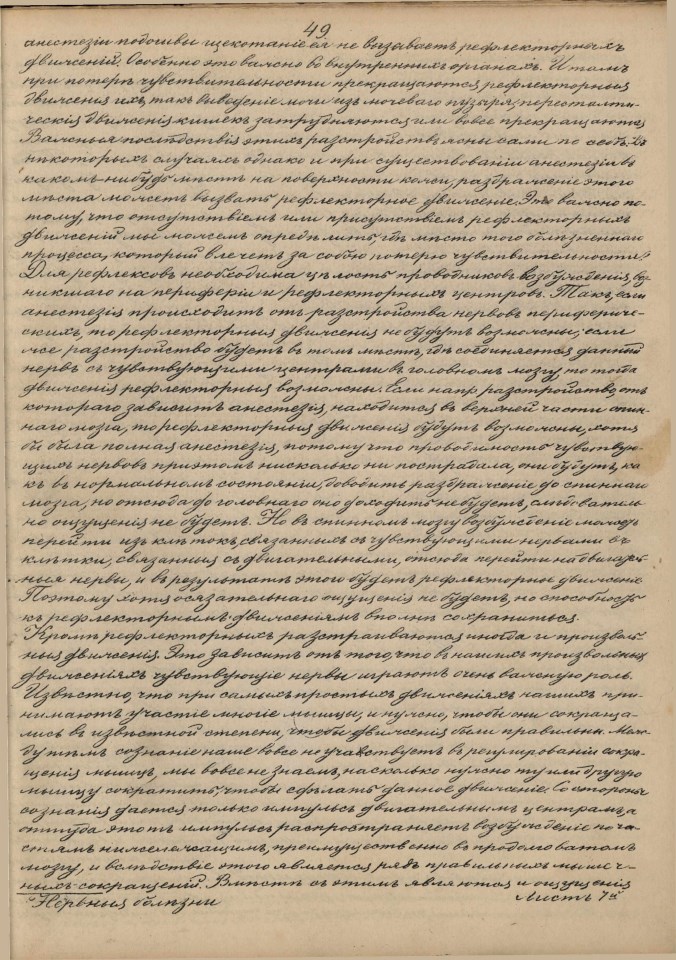 49
анестезіи подошвы щекотаніе ея не вызываетъ рефлекторныхъ
движеній. Особенно это важно во внутреннихъ органахъ. И тамъ
при потерѣ чувствительности прекращаются рефлекторныя
движенія ихъ, такъ выведеніе мочи изъ мочеваго пузыря, перисталти-
ческія движенія кишекъ затрудняются или вовсе прекращаются
Важныя послѣдствія этихъ разстройствъ ясны сами по себѣ. Въ
нѣкоторыхъ случаяхъ однако и при существованіи анестезіи въ
какомъ-нибудь мѣстѣ на поверхности кожи, раздраженіе этого
мѣста можетъ вызвать рефлекторное движеніе. Это важно по-
тому, что отсутствіемъ или присутствіемъ рефлекторныхъ
движеній мы можемъ опредѣлить, гдѣ мѣсто того болѣзненнаго
процесса, который влечетъ за собою потерю чувствительности.
Для рефлексовъ необходима цѣлость проводниковъ возбужденія, воз-
никшаго на периферіи и рефлекторныхъ центровъ. Такъ, если
анестезія происходитъ отъ разстройства нервовъ периферичес-
скихъ, то рефлекторныя движенія не будутъ возможны; если
же разстройство будетъ въ томъ мѣстѣ, гдѣ соединяется данный
нервъ съ чувствующими центрами въ головномъ мозгу, то тогда
движенія рефлекторныя возможны. Если напр. разстройство, отъ
котораго зависитъ анестезія, находится въ верхней части спин-
наго мозга, то рефлекторныя движенія будутъ возможны, хотя
бы была полная анестезія, потому что проводимость чувствую-
щихъ нервовъ при этомъ нисколько ни пострадала, они будутъ, ка
къ въ нормальномъ состояніи, доводить раздраженіе до спиннаго
мозга, но отсюда до головнаго оно доходить не будетъ, слѣдователь-
но ощущенія не будетъ. Но въ спинномъ мозгу возбужденіе можетъ
перейти изъ клѣтокъ, связанныхъ съ чувствующими нервами въ
клѣтки, связанныя съ двигательными, отсюда перейти на двигатель-
ныя нервы, и въ результатѣ этого будетъ рефлекторное движеніе
Поэтому хотя осязательнаго ощущенія не будетъ, но способность
къ рефлекторнымъ движеніямъ вполнѣ сохраниться.
Кромѣ рефлекторныхъ разстраиваются иногда и произволь-
ныя движенія. Это зависитъ отъ того, что въ нашихъ произвольныхъ
движеніяхъ чувствующіе нервы играютъ очень важную роль.
Извѣстно, что при самыхъ простыхъ движеніяхъ нашихъ при-
нимаютъ участіе многіе мышцы, и нужно, чтобы они сокраща-
лись въ извѣстной степени, чтобы движенія были правильны. Меж-
ду тѣмъ сознаніе наше вовсе не участвуетъ въ регулированіи сокра-
щенія мышцъ, мы вовсе не знаемъ, насколько нужно ту или другую
мышцу сократить, чтобы сдѣлать данное движеніе. Со стороны
сознанія дается только импульсъ двигательнымъ центрамъ, а
оттуда этотъ импульсъ распространяетъ возбужденіе по ча-
стямъ нижележащимъ, преимущественно въ продолговатомъ
мозгу, и вслѣдствіе этого является рядъ правильныхъ мышеч-
ныхъ сокращеній. Вмѣстѣ съ этимъ являются и ощущенія
Нервныя болѣзни
Листъ 7й